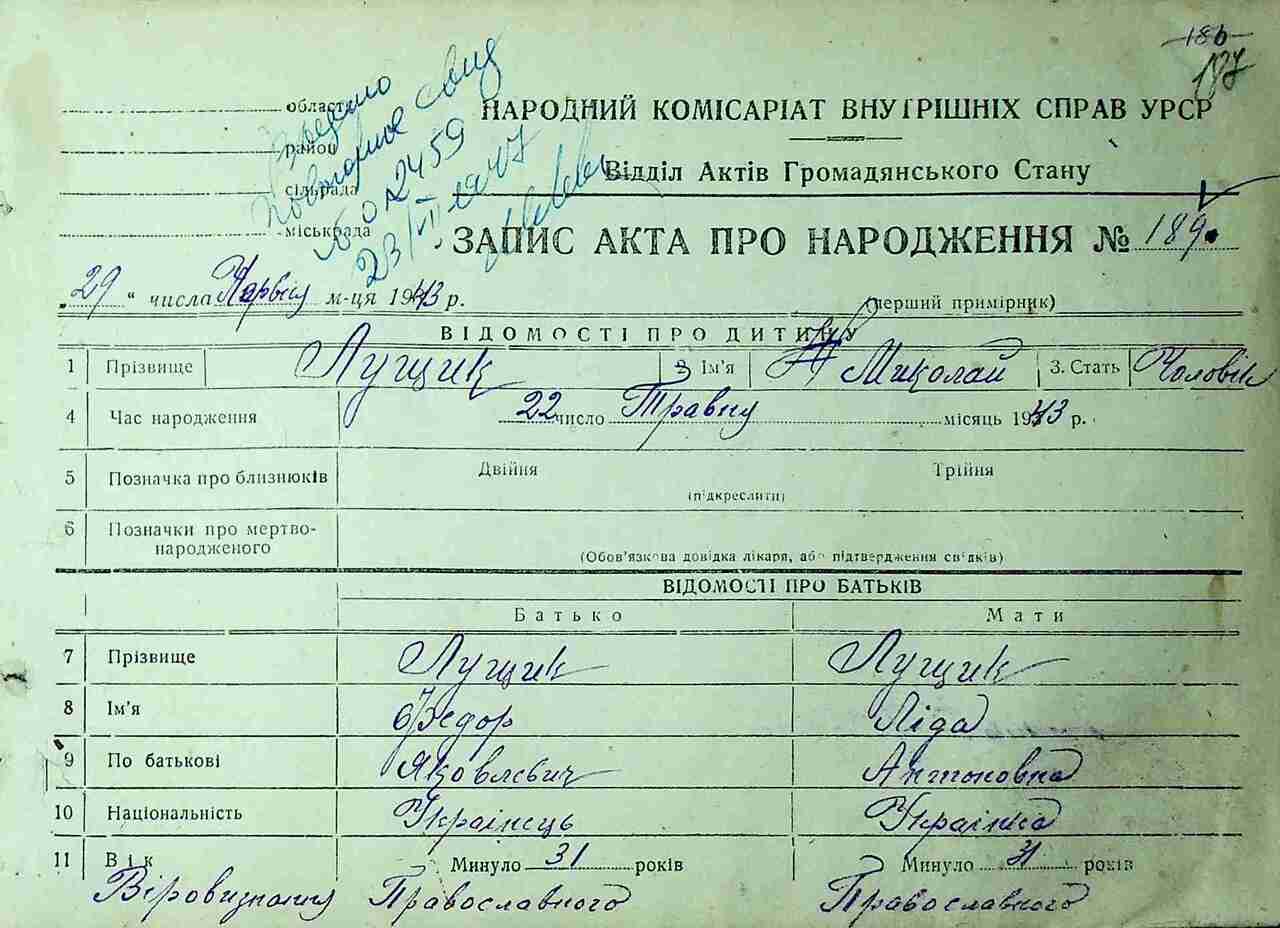 186
187
область
НАРОДНИЙ КОМІСАРІАТ ВНУТРІШНІХ СПРАВ УРСР
район
Відділ Актів Громадянського Стану
сільрада
міськрада
№ 02459
23/II 1947
ЗАПИС АКТА ПРО НАРОДЖЕННЯ № 189
„29“ числа Червня м-ця 1943 р. (перший примірник)
ВІДОМОСТІ ПРО ДИТИНУ
1 Прізвище Лущик 2 Ім'я Миколай 3. Стать Чоловік
4 Час народження 22 число Травня місяць 1943 р.
5 Позначка про близнюків Двійня Трійня
(підкреслити)
6 Позначки про мертво-
народженого
(Обов'язкова довідка лікаря, або підтвердження свідків)
ВІДОМОСТІ ПРО БАТЬКІВ
Батько Мати
7 Прізвище Лущик Лущик
8 Ім'я Федор Ліда
9 По батькові Яковлевич Антоновна
10 Національність Українець Українка
11 Вік Минуло 31 років Минуло 31 років
Віровизнання Православного Православного